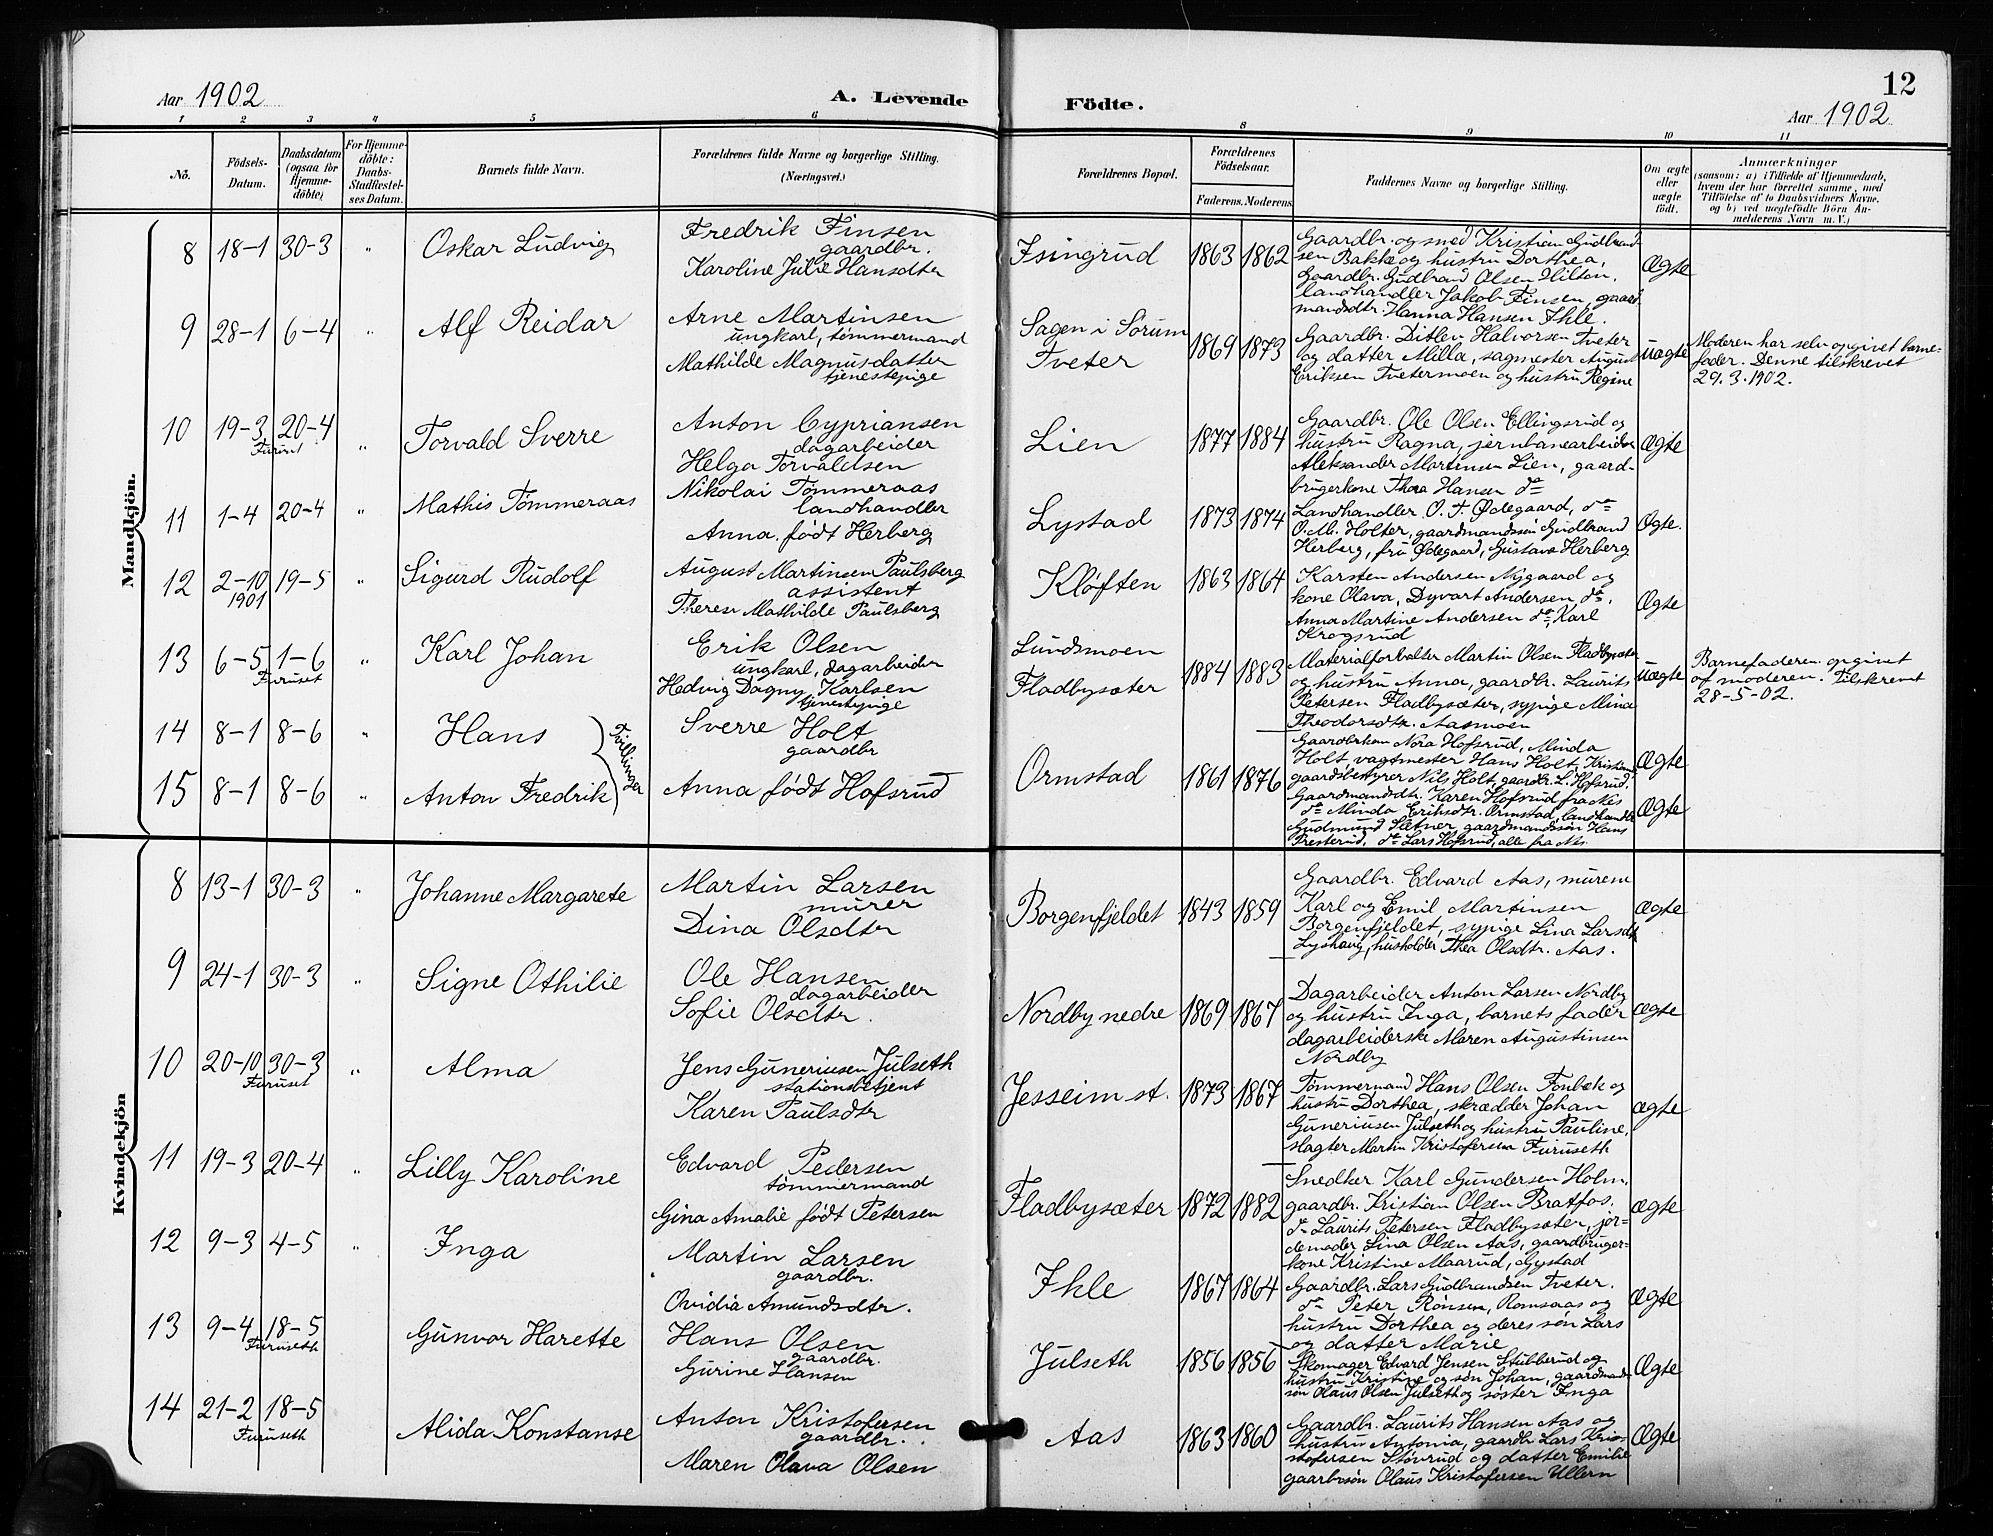 12
Aar 1902
A. Levende Födte.
Aar 1902
1 2 3 4 5 6 8 9 10 11
No.
Födsels-Datum.
Daabsdatum (ogsaa for Hjemme-döbte)
For Hjemme-döbte: Daabs-Stadfæstel-ses Datum.
Barnets fulde Navn.
Forældrenes fulde Navne og borgerlige Stilling.
(Næringsvei.)
Forældrenes Bopæl.
Forældrenes Födselsaar.
Faderens. Moderens.
Faddernes Navne og borgerlige Stilling.
Om ægte eller uægte födt.
Anmærkninger
(saasom: a) i Tilfælde af Hjemmedaab,
hvem der har forrettet samme, med
Tilföielse af to Daabsvidners Navne.
og b) ved uægtefödte Börn An-
melderens Navn m. V.)
Mandkjön.
8 18-1 30-3 " Oskar Ludvig
Fredrik Finsen
gaardbr.
Karoline Julie Hansdtr
Isingrud 1863 1862
Gaardbr. og smed Kristian Gudbrand-
sen Bakke og hustru Dorthea,
Gaardbr. Gudbrand Olsen Hilton,
landhandler Jakob Finsen, gaard-
mandsdtr. Hanna Hansen Ihle.
Ægte
9 28-1 6-4 " Alf Reidar
Arne Martinsen
ungkarl, tømmermand
Mathilde Magnusdatter
tjenestepige
Sagen i Sørum
Tveter
1869 1873
Gaardbr. Ditlev Halvorsen Tveter
og datter Milla, sagmester August
Eriksen Tvetermoen og hustru Regine
uægte
Moderen har selv opgivet barne-
fader. Denne tilskrevet
29.3.1902.
10 19-3 20-4 " Torvald Sverre
Furuset
Anton Cypriansen
dagarbeider
Helga Torvaldsen
Lien 1877 1884
Gaardbr. Ole Olsen Ellingsrud og
hustru Ragna, jernbanearbeider
Aleksander Martinsen Lien, gaard-
brugerkone Thora Hansen do
Ægte
11 1-4 20-4 " Mathis Tømmeraas
Nikolai Tømmeraas
landhandler
Anna født Herberg
Lystad 1873 1874
Landhandler O. T. Ødegaard, do
O. M. Holter, gaardmandssøn Gudbrand
Herberg, fru Ødegaard, Gustava Herberg
Ægte.
12 2-10 19-5 " Sigurd Rudolf
1901
August Martinsen Paulsberg
assistent
Therese Mathilde Paulsberg
Kløften 1863 1864
Karsten Andersen Nygaard og
kone Olava, Dyvart Andersen do,
Anna Martine Andersen do, Karl
Krogsrud
Ægte
13 6-5 1-6 " Karl Johan
Furuset
Erik Olsen
ungkarl, dagarbeider
Hedvig Dagny Karlsen
tjenestepige
Lundsmoen
Fladbysæter
1884 1883
Materialforvalter Martin Olsen Fladbysæter
og hustru Anna, gaardbr. Laurits
Petersen Fladbysæter, sypige Mina
Theodorsdtr. Aasmoen
uægte
Barnefaderen opgivet
af moderen. Tilskrevet
28-5-02.
14 8-1 8-6 " Hans
Tvillinger
Sverre Holt
gaardbr
15 8-1 8-6 " Anton Fredrik
Anna født Hofsrud
Ormstad 1861 1876
Gaardbrkone Nora Hofsrud, Minda
Holt, vagtmester Hans Holt, Kristiania,
gaardsbestyrer Nils Holt, gaardbr. L. Hofsrud,
Gaardmandsdtr. Karen Hofsrud fra Nes
do Minda Eriksdtr. Ormstad, landhandler
Gudmund Sætner, gaardmandssøn Hans
Presterud, do Lars Hofsrud, alle fra Nes.
Ægte
Ægte
Kvindekjön
8 13-1 30-3 " Johanne Margarete
Martin Larsen
murer
Dina Olsdtr
Borgenfjeldet 1843 1859
Gaardbr. Edvard Aas, murene
Karl og Emil Martinsen
Borgenfjeldet, sypige Lina Larsdtr
Lyshaug, husholder Thea Olsdtr. Aas.
ægte
9 24-1 30-3 " Signe Othilie
Ole Hansen
dagarbeider
Sofie Olsdtr.
Nordby nedre 1869 1867
Dagarbeider Anton Larsen Nordby
og hustru Inga, barnets fader
dagarbeiderske Maren Augustinsen
Nordby
ægte
10 20-10 30-3 " Alma
Furuset
Jens Guneriusen Julseth
stationsbetjent
Karen Paulsdtr
Jesseim st. 1873 1867
Tømmermand Hans Olsen Fonbæk og
hustru Dorthea, skrædder Johan
Guneriusen Julseth og hustru Pauline,
slagter Martin Kristofersen Furuseth
ægte
11 19-3 20-4 " Lilly Karoline
Edvard Pedersen
tømmermand
Gina Amalie født Petersen
Fladbysæter 1872 1882
Snedker Karl Gundersen Holm,
gaardbr. Kristian Olsen Bratfos.
do Laurits Petersen Fladbysæter, jor-
demoder Lina Olsen Aas, gaardbruger-
kone Kristine Maarud, Gystad
ægte
12 9-3 4-5 " Inga
Martin Larsen
gaardbr.
Ovidia Amundsdtr.
Ihle 1867 1864
Gaardbr. Lars Gudbrandsen Tveter.
do Peter Rønsen, Romsaas og
hustru Dorthea og deres søn Lars
og datter Marie
Ægte
13 9-4 18-5 Gunvor Harette
Furuseth
Hans Olsen
gaardbr.
Gurine Hansen
Julseth 1856 1856
Skomager Edvard Jensen Stubberud og
hustru Kristine og søn Johan, gaardmands-
søn Olaus Olsen Julseth og søster Inga
Ægte
14 21-2 18-5 Alida Konstanse
Furuseth
Anton Kristofersen
gaardbr.
Maren Olava Olsen
Aas 1863 1860
Gaardbr. Laurits Hansen Aas og
hustru Antonia, gaardbr Lars Kris-
tofersen Støvrud og datter Emilie
gaardbrsøn Olaus Kristofersen Ullern
Ægte